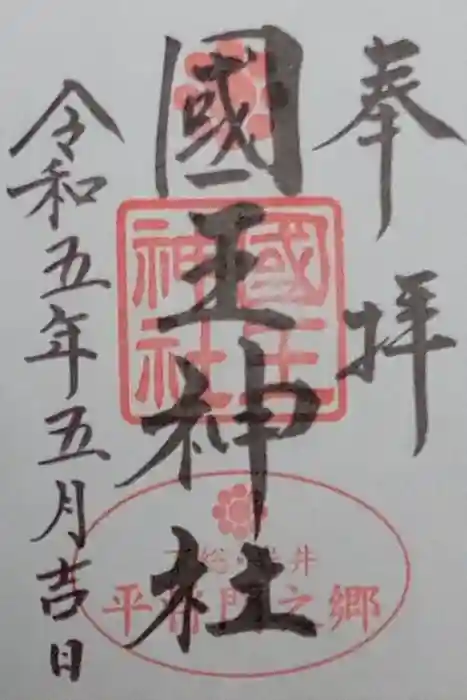 奉拝
國王神社
國王神社
下総 岩井
平将門之郷
令和五年五月吉日